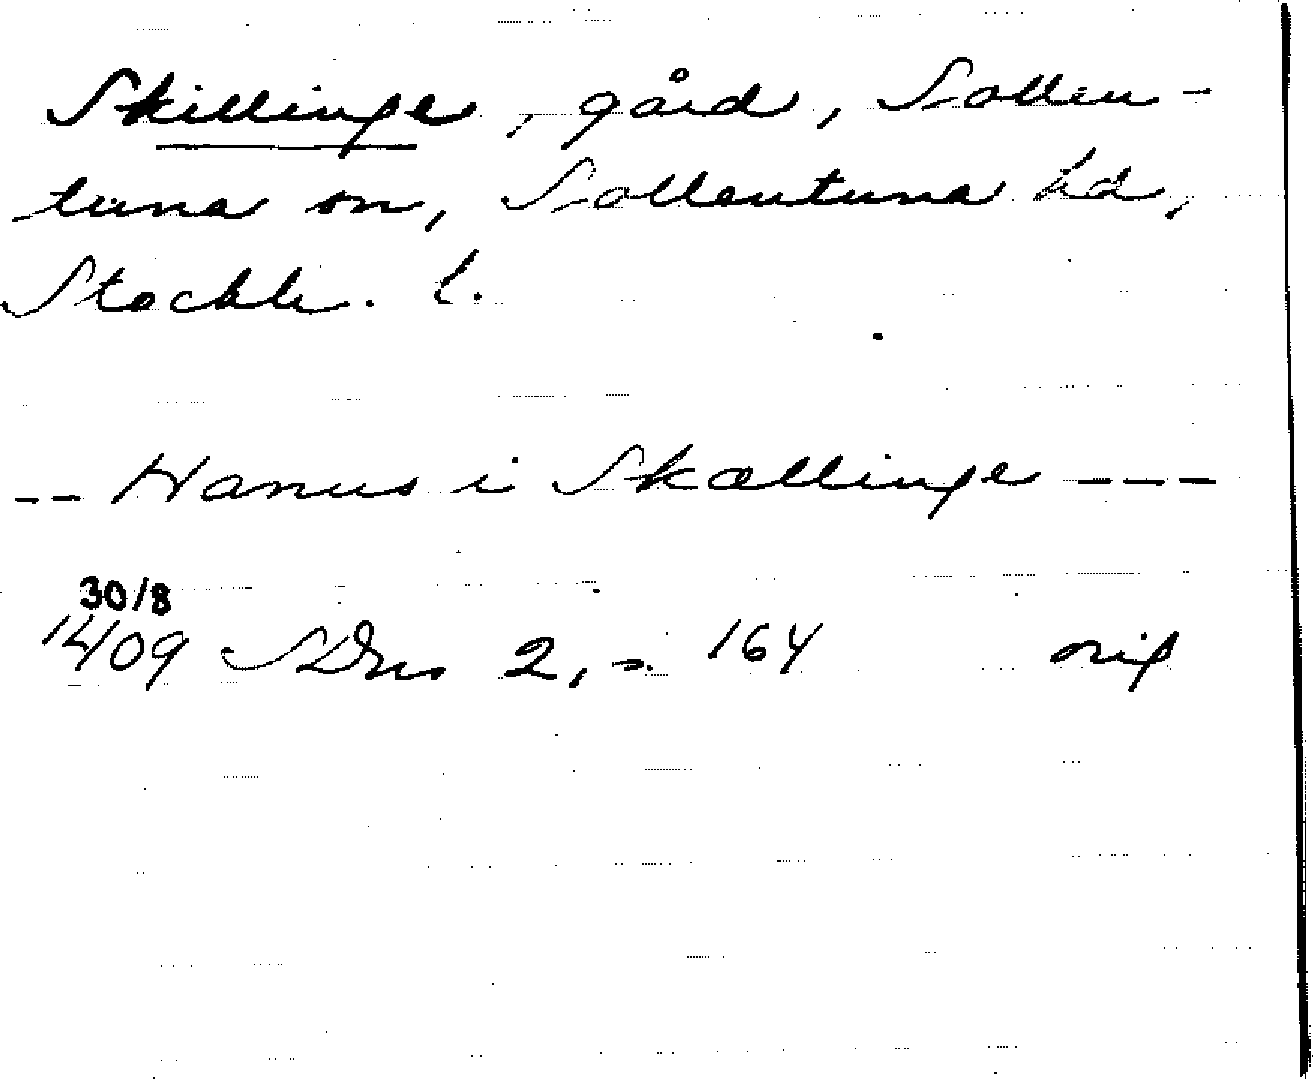 Skillinge, gård, Sollen-
tuna sn, Sollentuna hd,
Stockh. l.
-- Hanus i Skællinge ---
30/8
1409 SDns 2, s. 164 orig